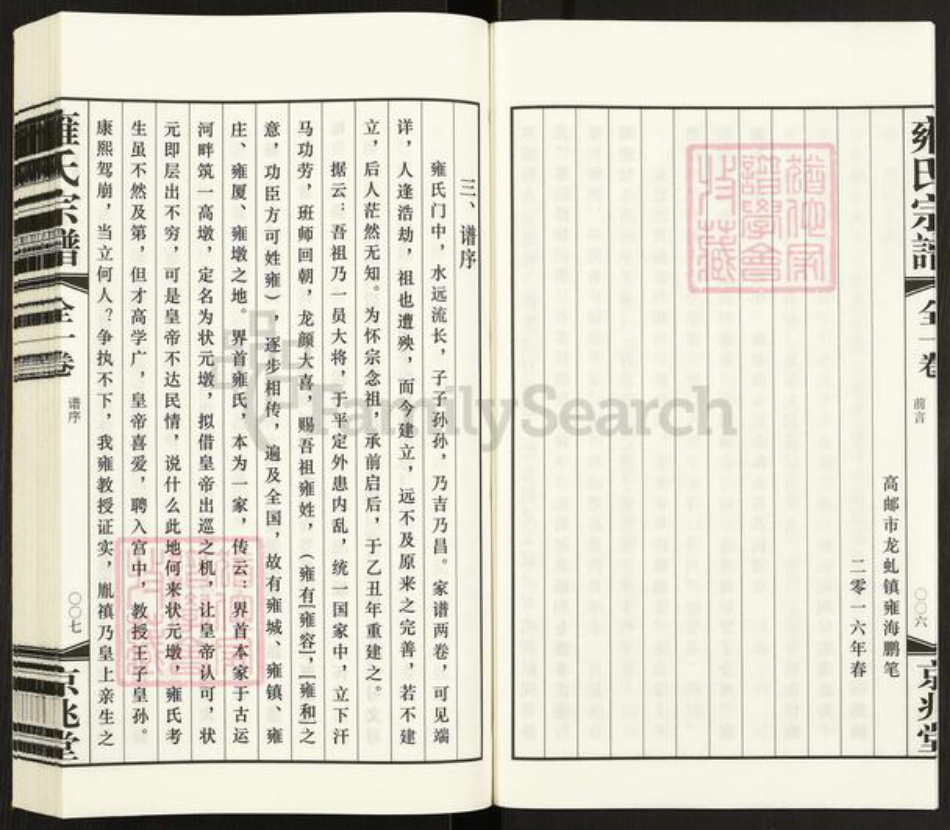 雍氏宗譜
全一卷
前言
〇〇六
京兆堂
高邮市龙虬镇雍海鹏笔
二零一六年春
三、谱序
雍氏门中，水远流长，子子孙孙，乃吉乃昌。家谱两卷，可见端
详，人逢浩劫，祖也遭殃，而今建立，远不及原来之完善，若不建
立，后人茫然无知。为怀宗念祖，承前启后，于乙丑年重建之。
据云：吾祖乃一员大将，于平定外患内乱，统一国家中，立下汗
马功劳，班师回朝，龙颜大喜，赐吾祖雍姓，（雍有[雍容]，[雍和]之
意，功臣方可姓雍），逐步相传，遍及全国，故有雍城、雍镇、雍
庄、雍厦、雍墩之地。界首雍氏，本为一家，传云：界首本家于古运
河畔筑一高墩，定名为状元墩，拟借皇帝出巡之机，让皇帝认可，状
元即层出不穷，可是皇帝不达民情，说什么此地何来状元墩，雍氏考
生虽不然及第，但才高学广，皇帝喜爱，聘入宫中，教授王子皇孙。
康熙驾崩，当立何人？争执不下，我雍教授证实，胤禛乃皇上亲生之
雍氏宗譜
全一卷
谱序
〇〇七
京兆堂
FamilySearch